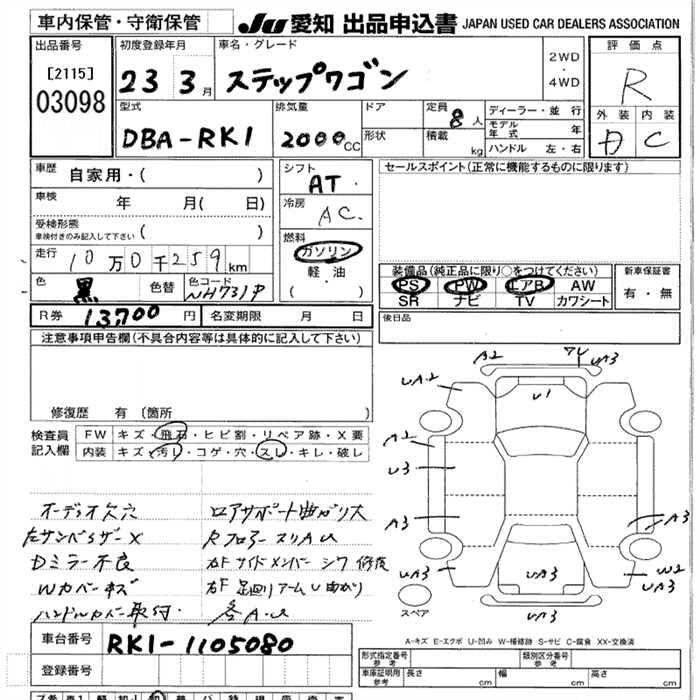 車内保管・守衛保管
JU 愛知 出品申込書 JAPAN USED CAR DEALERS ASSOCIATION
出品番号
[2115]
03098
初度登録年月
23 3月
車名・グレード
ステップワゴン
2WD
・
4WD
評価点
R
型式
DBA-RK1
排気量
2000cc
ドア
形状
定員 8人
積載 kg
ディーラー・並行
モデル年式 年
ハンドル 左・右
外装 内装
D C
車歴 自家用・( )
シフト
AT
セールスポイント(正常に機能するものに限ります)
車検 年 月( 日)
冷房
AC
受検形態
車検付きのみ記入して下さい ( )
燃料
ガソリン
軽油
( )
走行 10万0千259km
色 黒 色替 色コード NH731P
装備品(純正品に限り○をつけてください)
PS PW エアB AW
SR ナビ TV カワシート
新車保証書
有・無
R券 13,700円 名変期限 月 日
後日品
注意事項申告欄(不具合内容等は具体的に記入して下さい)
修復歴 有 (箇所 )
検査員記入欄
FW キズ・飛石・ヒビ割・リペア跡・X要
内装 キズ・汚レ・コゲ・穴・スレ・キレ・破レ
オーディオ欠穴
左サンバイザーX
Dミラー不良
Wカバーキズ
ハンドルカバー取付
ロアサポート曲がり大
RフロアースリAU
右Fサイドメンバーシワ修復
右F足廻りアームU曲がり
各A・U
A2 UA3
UA2 U1
A2
U3
A3 A3
UA3 UA3 W2
UA3
UA3
スペア
A-キズ E-エクボ U-凹み W-補修跡 S-サビ C-腐食 XX-交換済
車台番号 RK1-1105080
登録番号
形式指定番号 参考
類別区分番号 参考
車庫証明用 参考 長さ cm 幅 cm 高さ cm